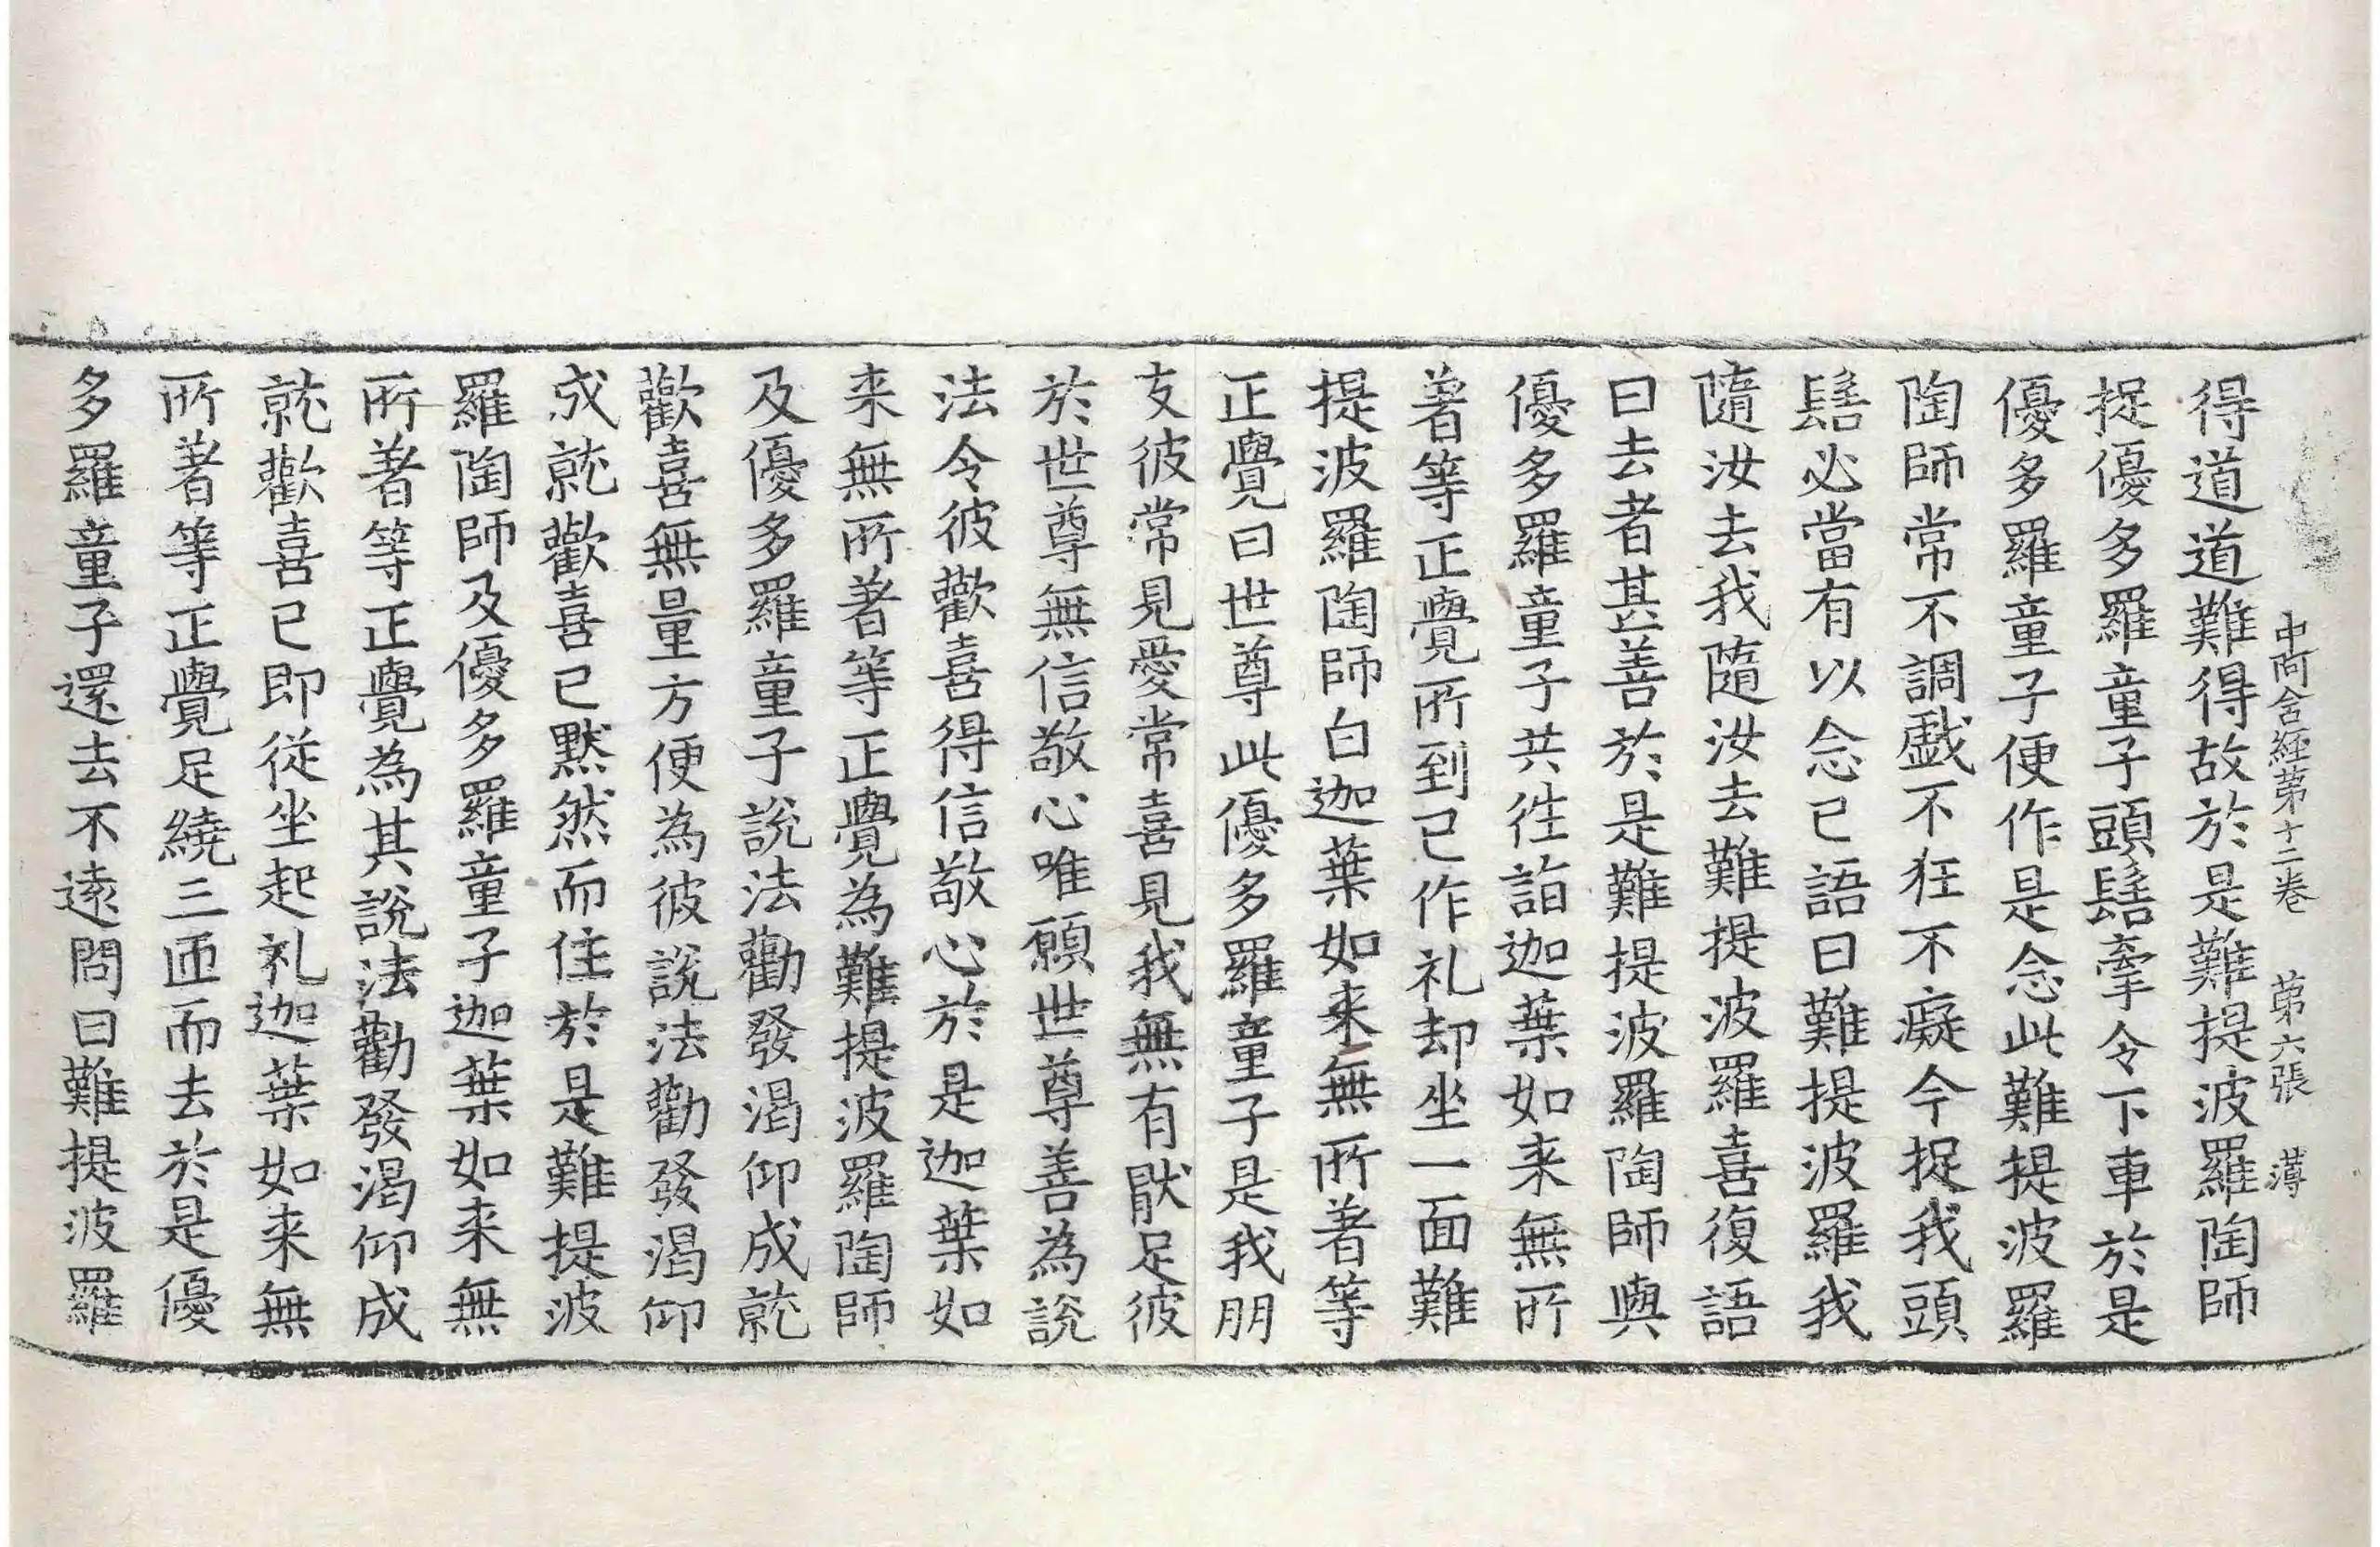 中阿含経第十二卷 第六張 薄
得道道難得故於是難提波羅陶師
捉優多羅童子頭髻牽令下車於是
優多羅童子便作是念此難提波羅
陶師常不調戲不狂不癡今捉我頭
髻必當有以念已語曰難提波羅我
隨汝去我隨汝去難提波羅喜復語
曰去者甚善於是難提波羅陶師與
優多羅童子共徃詣迦葉如来無所
著等正覺所到已作礼却坐一面難
提波羅陶師白迦葉如来無所著等
正覺曰世尊此優多羅童子是我朋
友彼常見愛常喜見我無有猒足彼
於世尊無信敬心唯願世尊善為說
法令彼歡喜得信敬心於是迦葉如
来無所著等正覺為難提波羅陶師
及優多羅童子說法勸發渴仰成就
歡喜無量方便為彼說法勸發渴仰
成就歡喜已默然而住於是難提波
羅陶師及優多羅童子迦葉如来無
所著等正覺為其說法勸發渴仰成
就歡喜已即從坐起礼迦葉如来無
所著等正覺足繞三匝而去於是優
多羅童子還去不遠問曰難提波羅